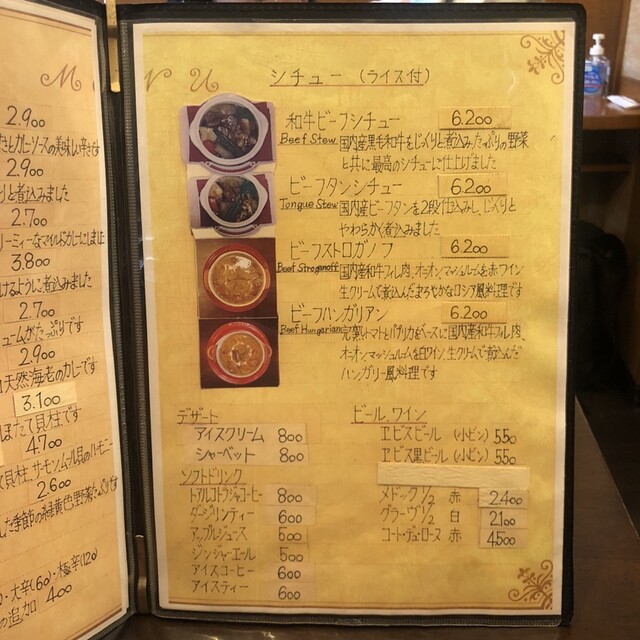 MENU
2.900
きとカレーソースの美味しい辛さです
2.900
りと煮込みました
2.700
リーミィーなマイルドカレーにしました
3.800
けるように煮込みました
2.700
ュームがたっぷりです
2.900
天然海老のカレーです
3.100
ほたて貝柱です
4.700
貝柱、サーモン、ムール貝のハーモニー
2.600
した季節の緑黄色野菜たっぷりです
・大辛(60)・極辛(120)
の追加 400
シチュー (ライス付)
和牛ビーフシチュー 6.200
Beef Stew 国内産黒毛和牛をじっくりと煮込みたっぷりの野菜
と共に最高のシチューに仕上げました
ビーフタンシチュー 6.200
Tongue Stew 国内産ビーフタンを2段仕込みし、じっくりと
やわらかく煮込みました
ビーフストロガノフ 6.200
Beef Stroganoff 国内産和牛フィレ肉、オニオンマッシュルームを赤ワイン
生クリームで煮込んだまろやかなロシア風料理です
ビーフハンガリアン 6.200
Beef Hungarian 完熟トマトとパプリカをベースに国内産和牛フィレ肉、
オニオンマッシュルームを白ワイン、生クリームで煮込んだ
ハンガリー風料理です
デザート
アイスクリーム 800
シャーベット 800
ソフトドリンク
トアルコトラジャコーヒー 800
ダージリンティー 600
アップルジュース 500
ジンジャーエール 500
アイスコーヒー 600
アイスティー 600
ビール、ワイン
ヱビスビール (小ビン) 550
ヱビス黒ビール (小ビン) 550
メドック 1/2 赤 2.400
グラーヴ 1/2 白 2.100
コート・デュ・ローヌ 赤 4.500